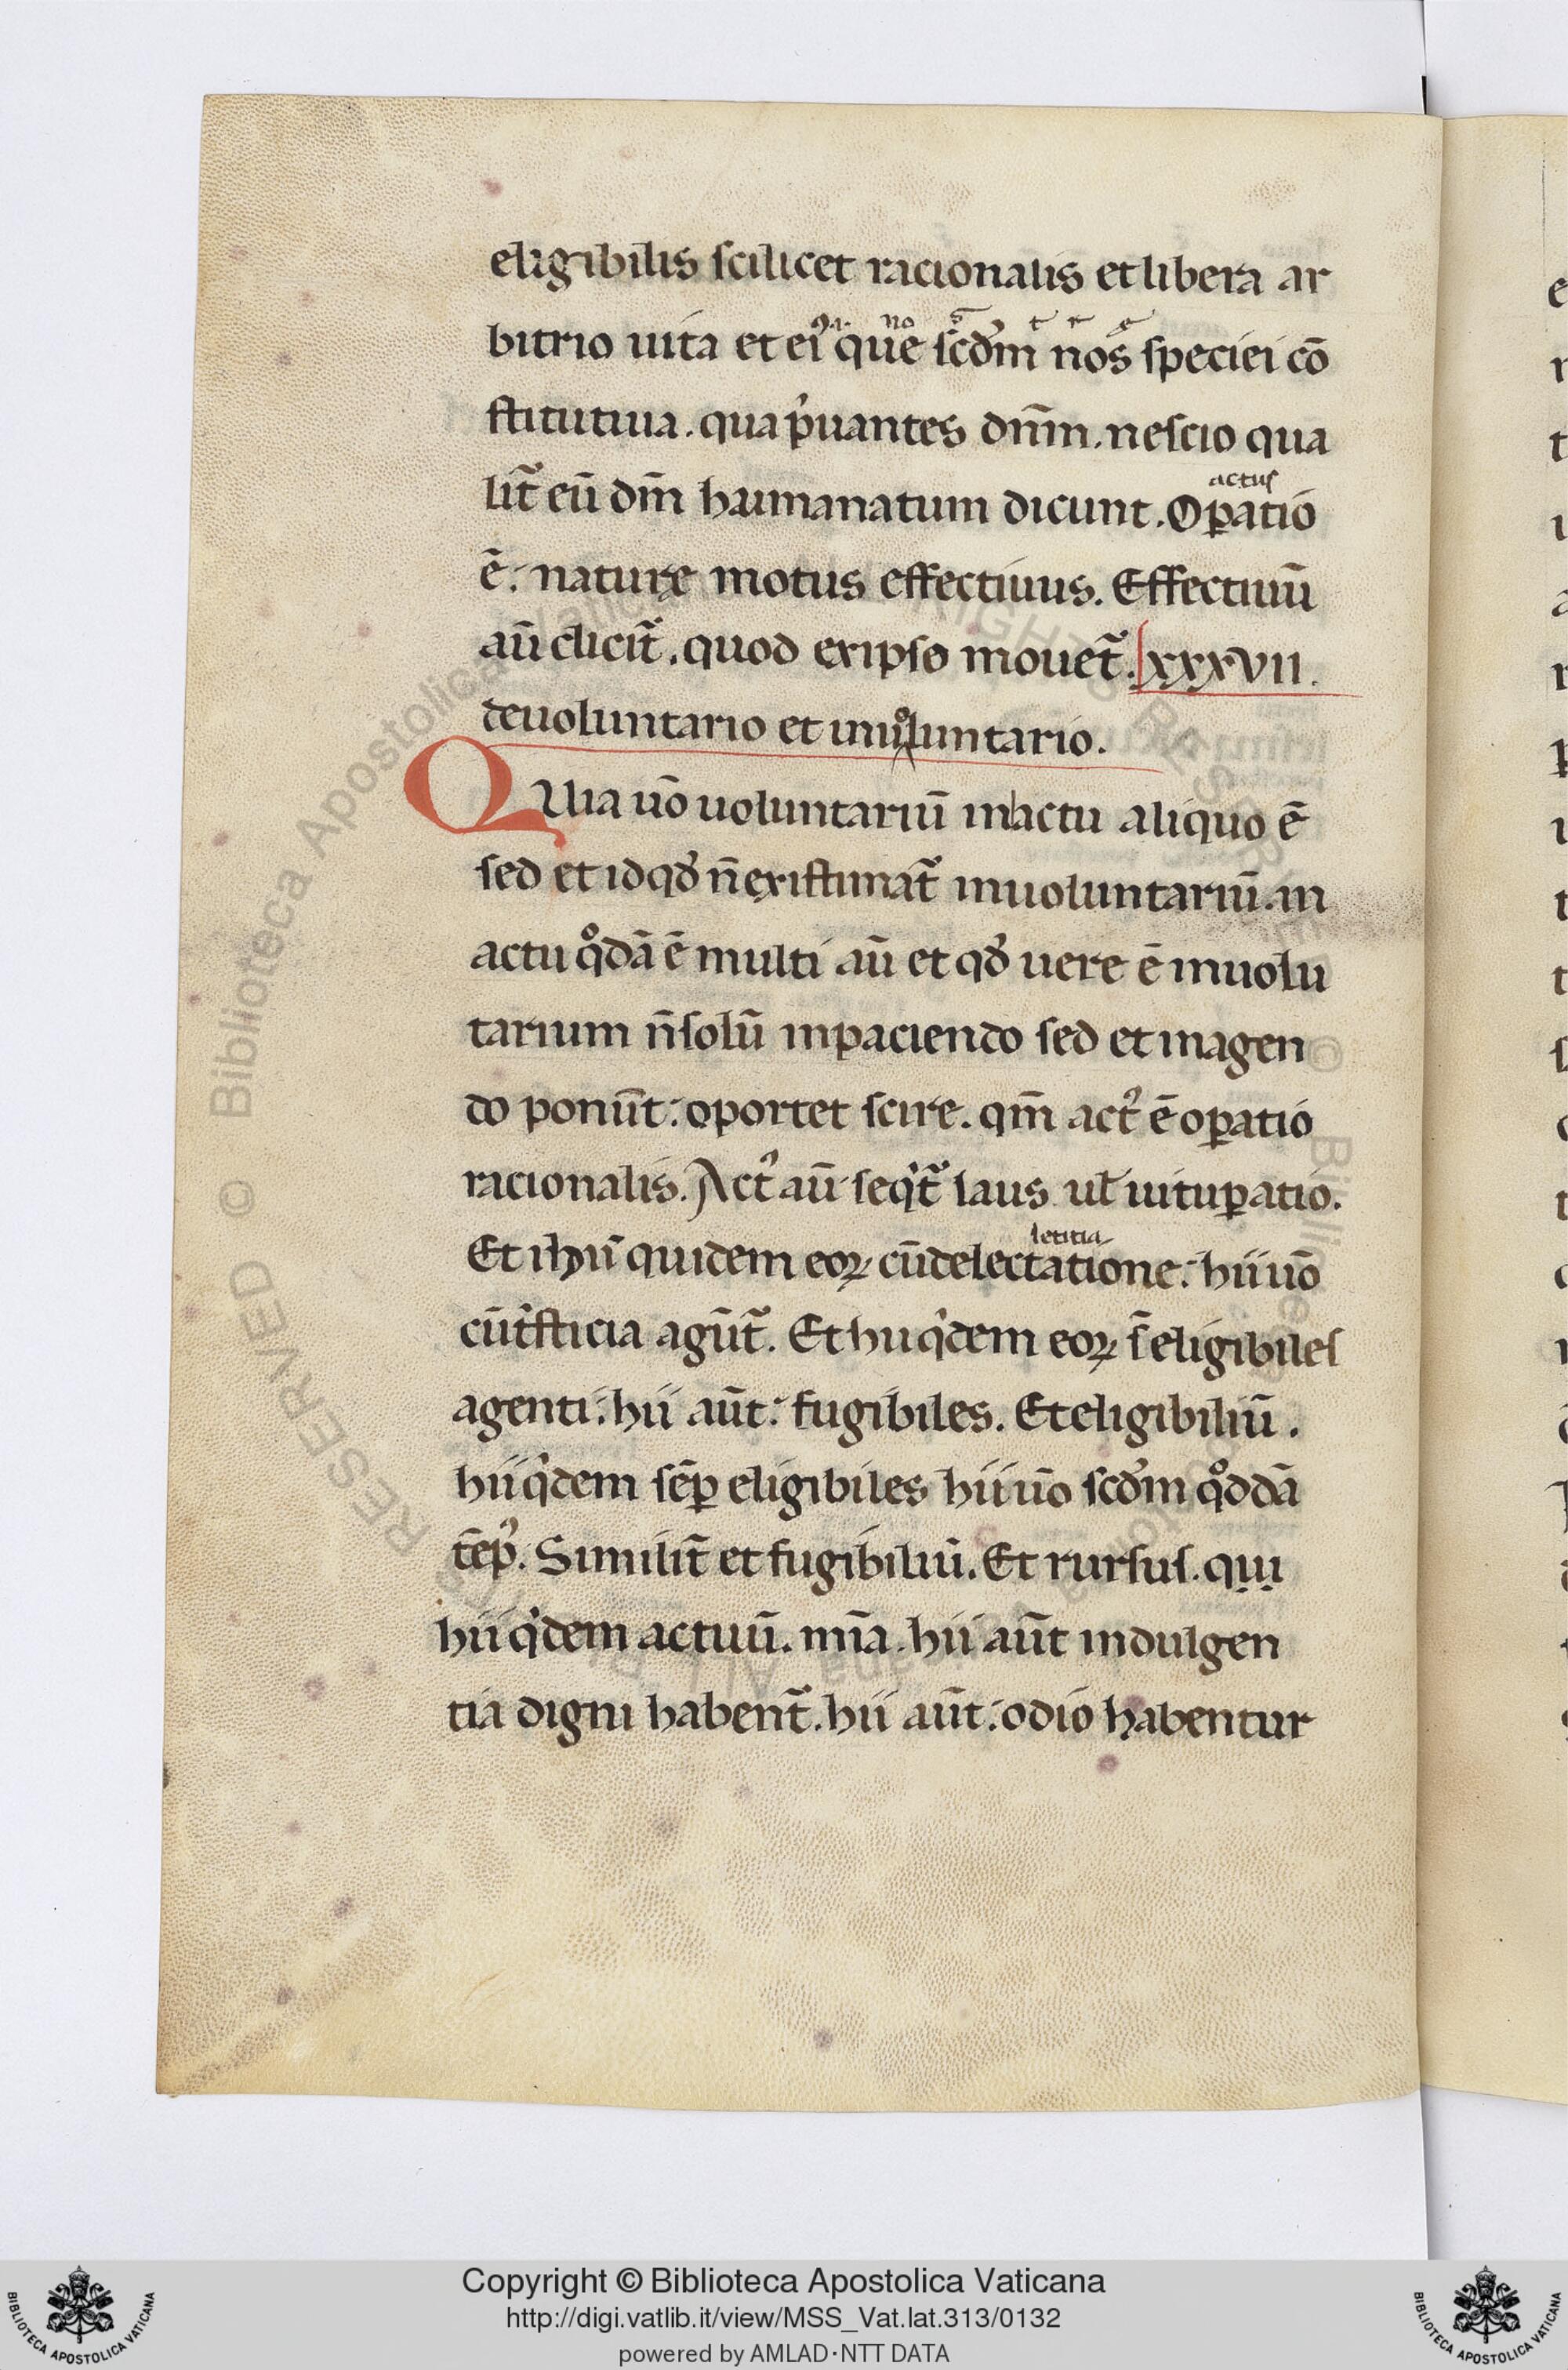 eligibilis scilicet racionalis et libera ar
bitrio uita et ei᾽ que scd̓m nos speciei cō
stitutiua. qua p̓uantes dn̄m. nescio qua
lit̄ eū dm̄ humanatum dicunt. Oꝑatio
actus
ē: nature motus effectiuus. Effectiuū
aū dicit̄. quod ex ipso mouet̄. xxxvii.
de uoluntario et inuoluntario.
QUia uō uoluntariū in actu aliquo ē
sed et id qd̓ n̄ existimat̄ inuoluntariū. in
actu qͦdā ē multi aū et qd̓ uere ē inuolu
tarium n̄ solū in paciendo sed et in agen
do ponūt: oportet scire. qm̄ act᾽ ē oꝑatio
racionalis. Act᾽ aū seqͥt̄ laus ul̄ uituꝑatio.
letitia
Et ihii quidem eoꝝ cū delectatione: hii uō
cū tͥsticia agūt̄. Et hii qͥdem eoꝝ s̄ eligibiles
agenti: hii aūt: fugibiles. Et eligibiliū.
hii qͥdem sēꝑ eligibiles hii uō scd̓m qͦddā
tēp᾽. Similit̄ et fugibiliū. Et rursus. qui
hii qͥdem actuū. mīa. hii aūt indulgen
tia digni habent̄. hii aūt: odio habentur
© Biblioteca Apostolica Vaticana
RIGHTS RESERVED
Copyright © Biblioteca Apostolica Vaticana
http://digi.vatlib.it/view/MSS_Vat.lat.313/0132
powered by AMLAD·NTT DATA
BIBLIOTECA APOSTOLICA VATICANA
BIBLIOTECA APOSTOLICA VATICANA